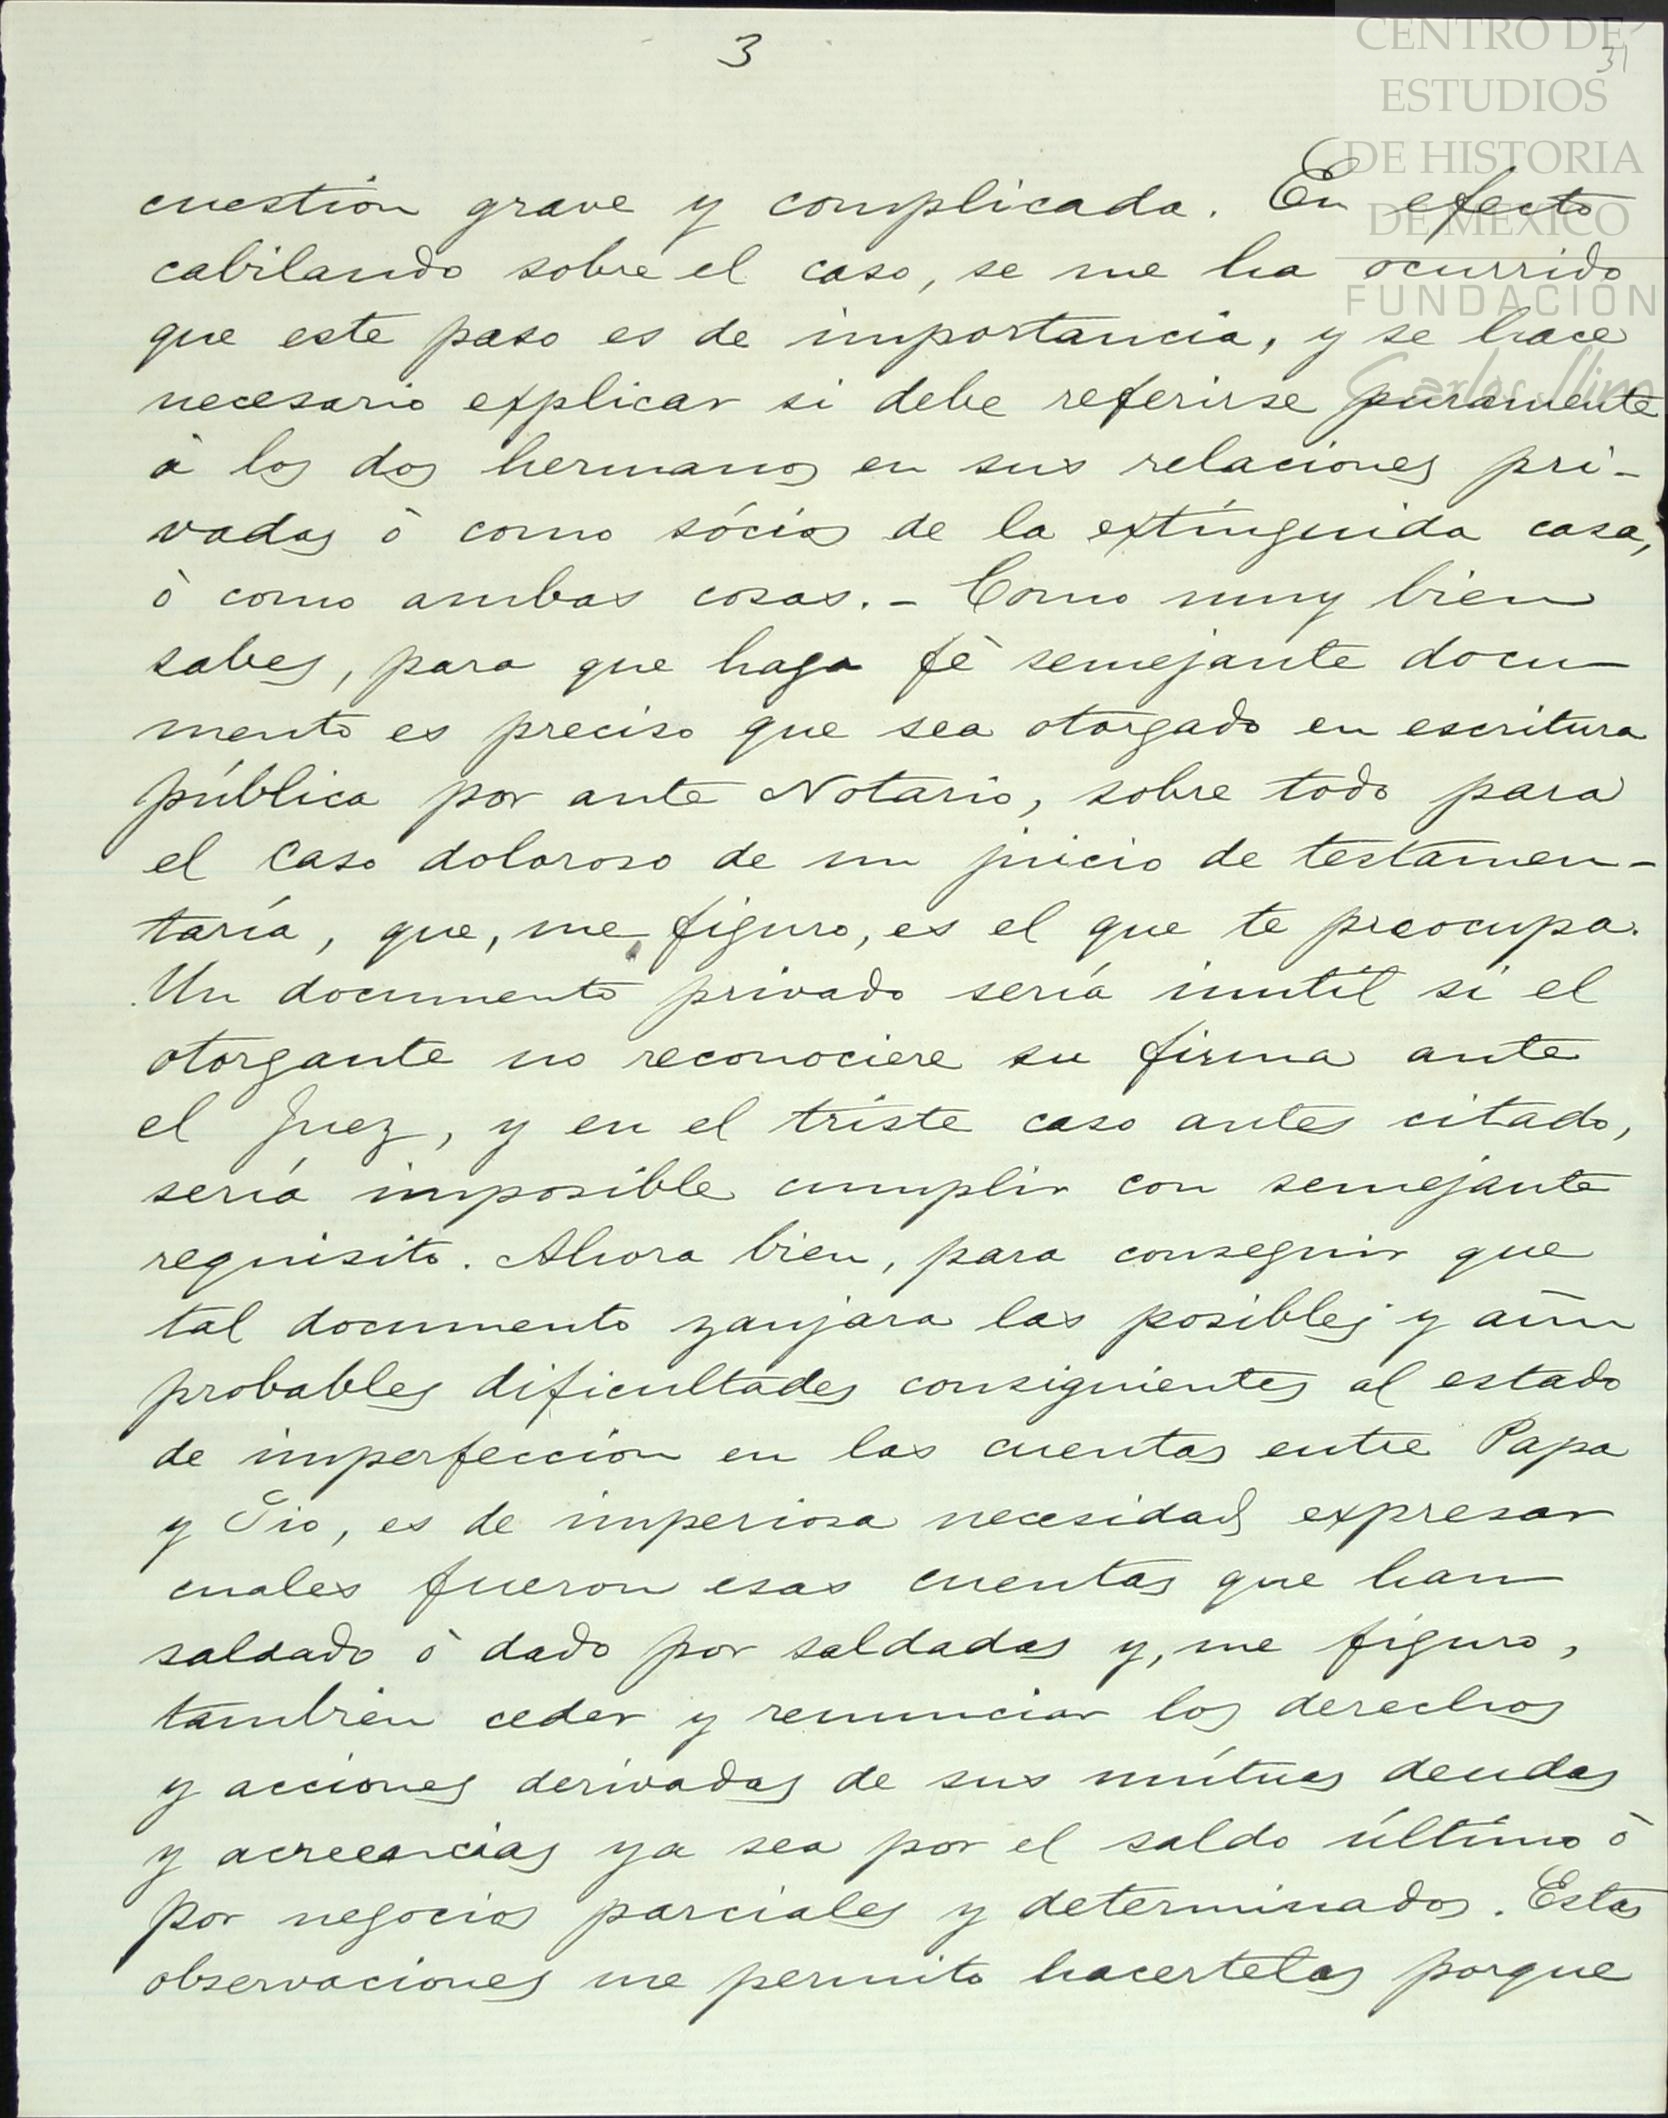 3
31
CENTRO DE
ESTUDIOS
DE HISTORIA
DE MÉXICO
FUNDACIÓN
Carlos Slim
cuestión grave y complicada. En efecto
cabilando sobre el caso, se me ha ocurrido
que este paso es de importancia, y se hace
necesario explicar si debe referirse puramente
à los dos hermanos en sus relaciones pri-
vadas ò como sócios de la extinguida casa,
ò como ambas cosas. - Como muy bien
sabes, para que haga fè semejante docu-
mento es preciso que sea otorgado en escritura
pública por ante Notario, sobre todo para
el caso doloroso de un juicio de testamen-
taría, que, me figuro, es el que te preocupa.
Un documento privado sería inutil si el
otorgante no reconociere su firma ante
el Juez, y en el triste caso antes citado,
sería imposible cumplir con semejante
requisito. Ahora bien, para conseguir que
tal documento zanjara las posibles y aún
probables dificultades consiguientes al estado
de imperfección en las cuentas entre Papa
y Tio, es de imperiosa necesidad expresar
cuales fueron esas cuentas que han
saldado ò dado por saldadas y, me figuro,
también ceder y renunciar los derechos
y acciones derivadas de sus mútuas deudas
y acreencias ya sea por el saldo último ò
por negocios parciales y determinados. Estas
observaciones me permito hacertelas porque